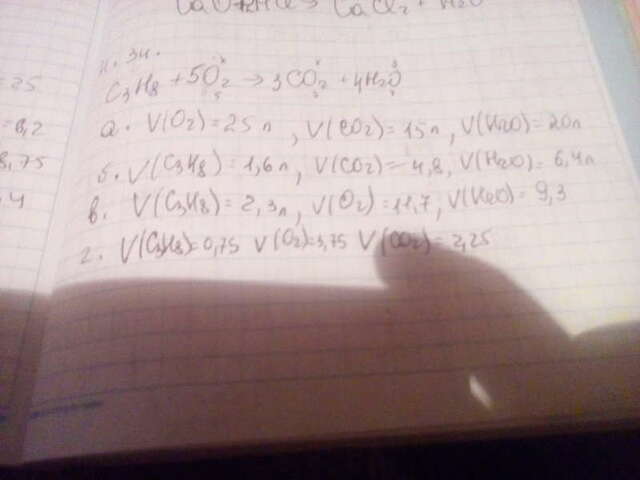 CaO+2HCl → CaCl2 + H2O
н. 34.
C3H8 + 5O2 → 3CO2 + 4H2O
а. V(O2) = 25 л , V(CO2) = 15 л , V(H2O) = 20л
=25
б. V(C3H8) = 1,6 л , V(CO2) = 4,8 , V(H2O) = 6,4л
=8,2
8,75
в. V(C3H8) = 2,3л , V(O2) = 11,7 , V(H2O) = 9,3
,4
г. V(C3H8)=0,75 V(O2)=3,75 V(CO2) = 2,25